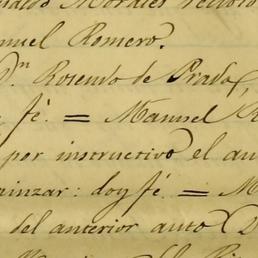 Morales
nuel Romero.
Dn Rosendo de Prada
fé. = Manuel
por instructivo el au
ainzar: doy fé. = M
del anterior auto D